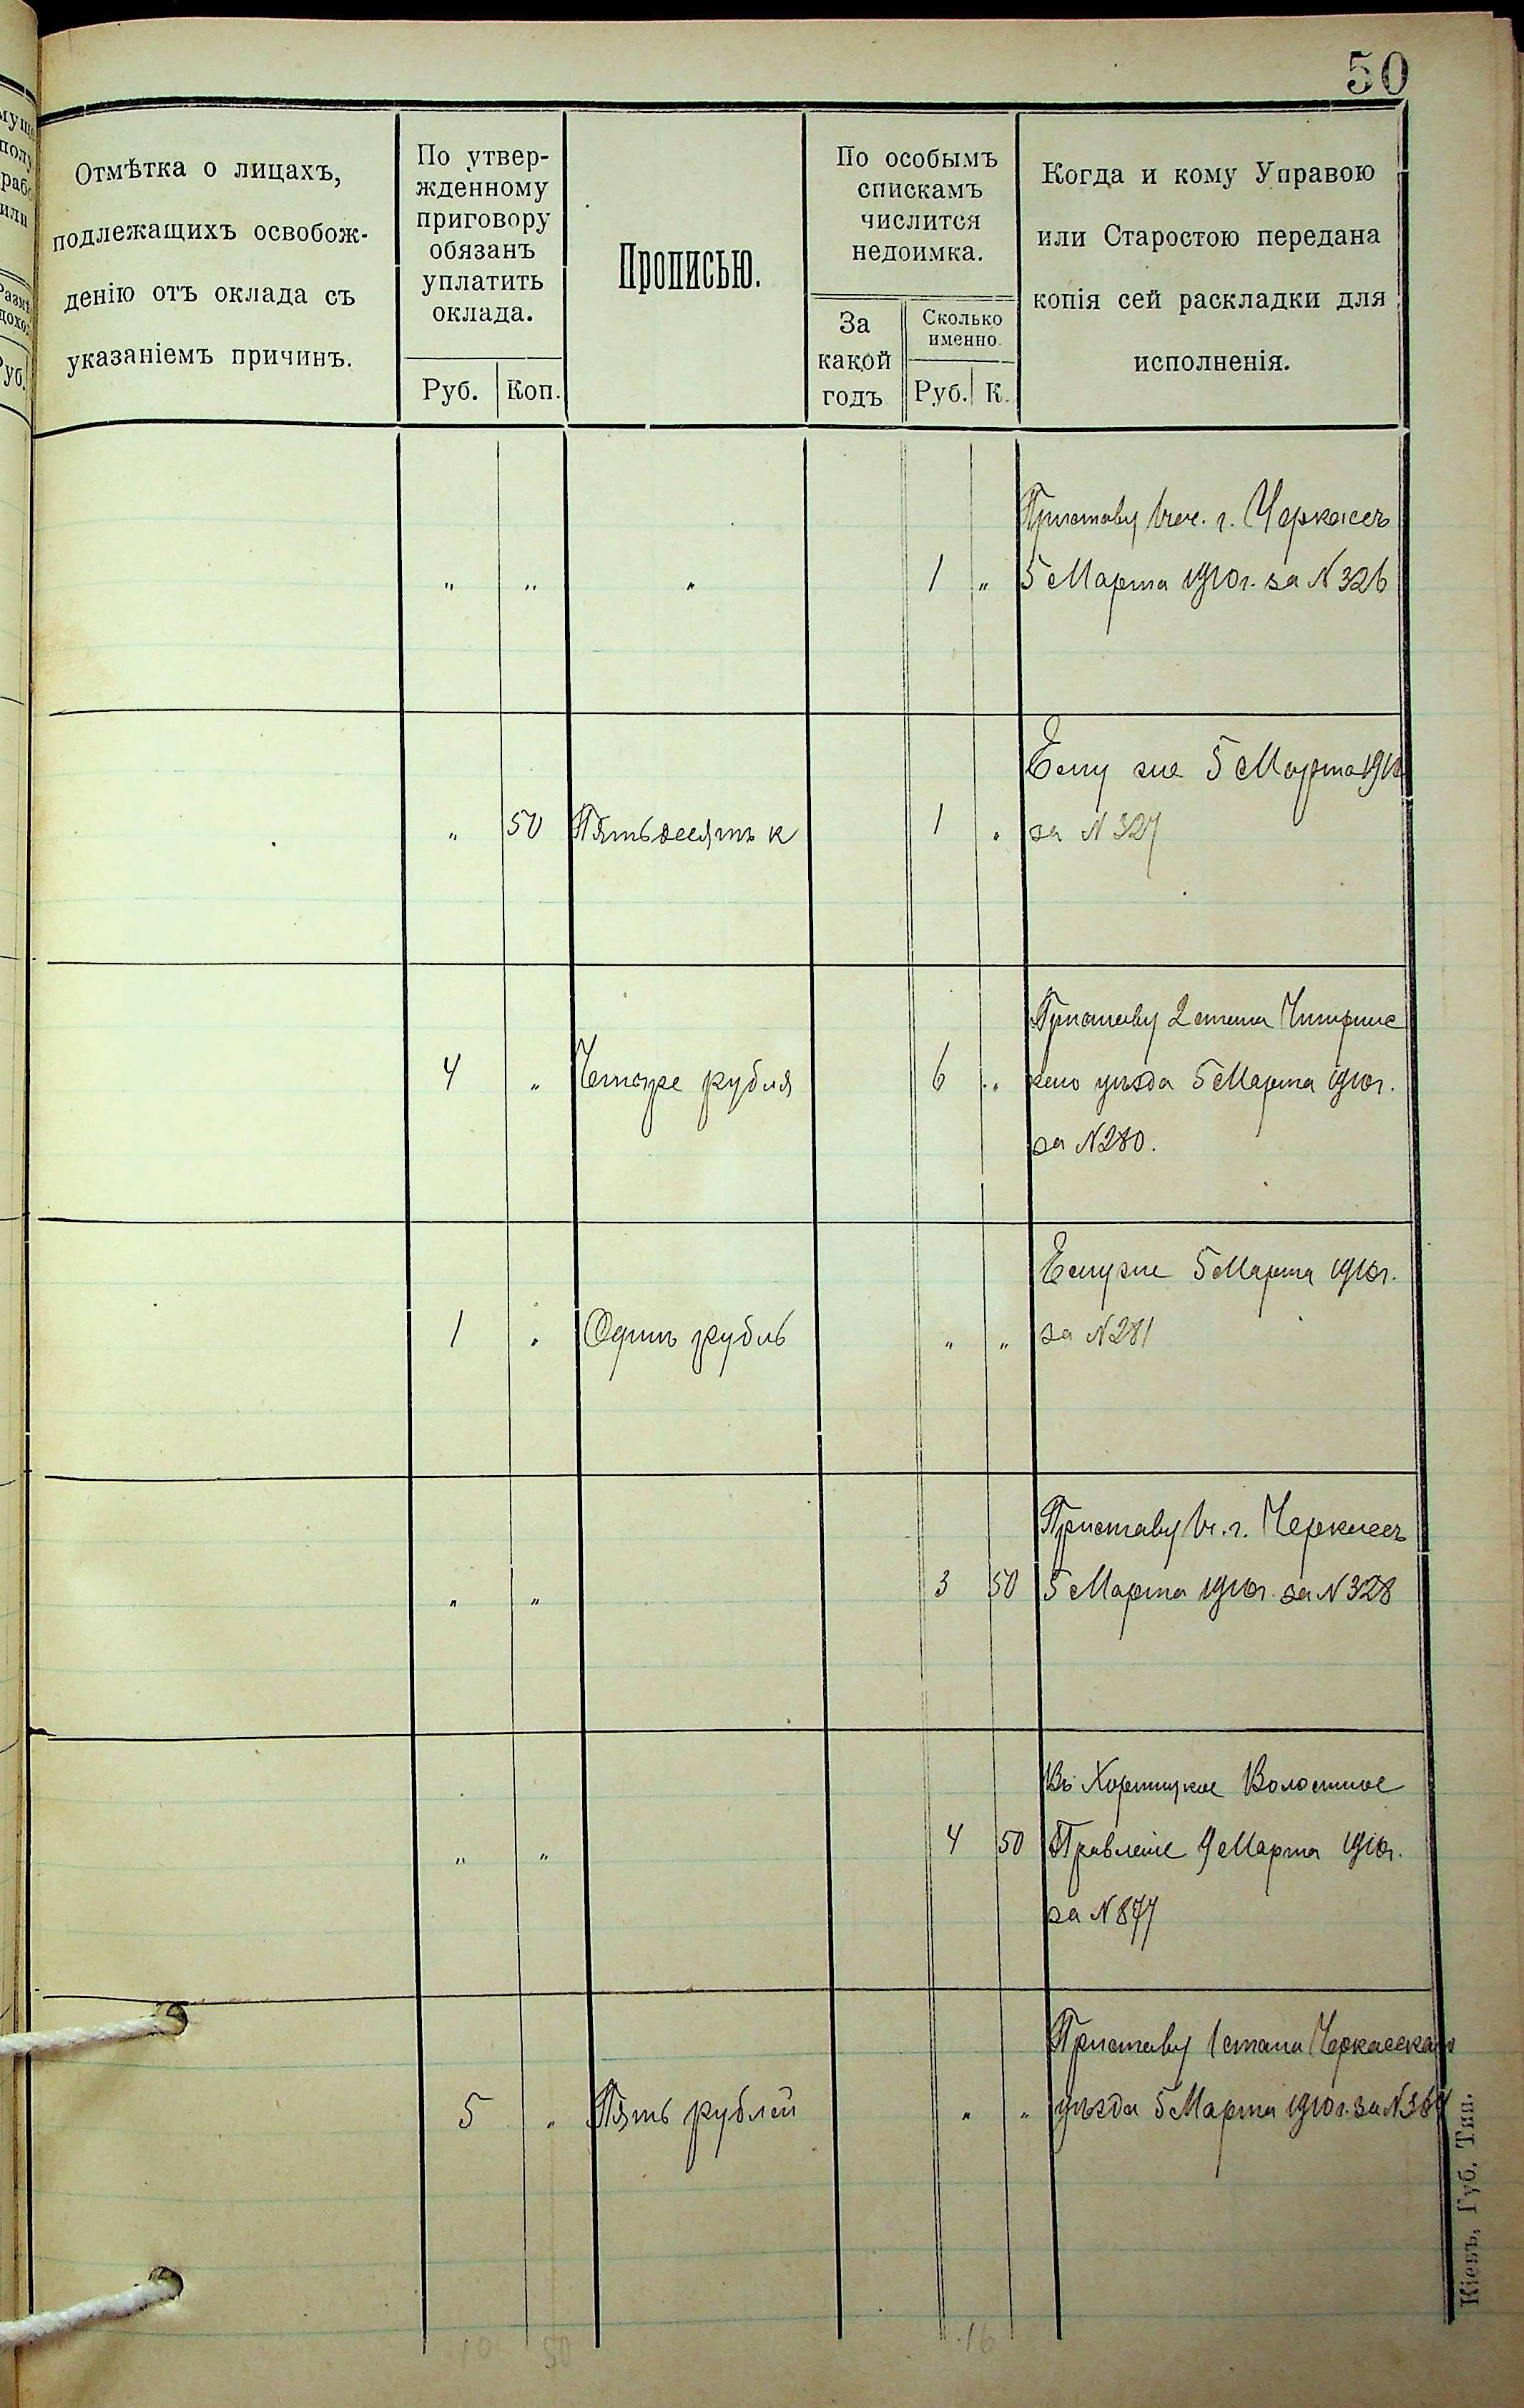 50
Отмѣтка о лицахъ,
подлежащихъ освобож-
денію отъ оклада съ
указаніемъ причинъ.
По утвер-
жденному
приговору
обязанъ
уплатить
оклада.
Руб. Коп.
Прописью.
По особымъ
спискамъ
числится
недоимка.
За
какой
годъ
Сколько
именно
Руб. К.
Когда и кому Управою
или Старостою передана
копія сей раскладки для
исполненія.
Приставу г. Черкассъ
" " " 1 " 5 Марта 1910 г. за N 326
Ему же 5 Марта 1910
" 50 Пятьдесятъ к 1 " за N 327
Приставу 2 стана Чигирин
4 " Четыре рубля 6 " скаго уѣзда 5 Марта 1910 г.
за N 280.
Ему же 5 Марта 1910 г.
1 " Одинъ рубль " " за N 281
Приставу г. Черкассъ
" " 3 50 5 Марта 1910 г. за N 328
Въ Хортицкое Волостное
" " 4 50 Правленіе 9 Марта 1910 г.
за N 877
Приставу 1 стана Черкасскаго
5 " Пять рублей " " уѣзда 5 Марта 1910 г. за N
10 50 16
Кіевъ, Губ. Тип.